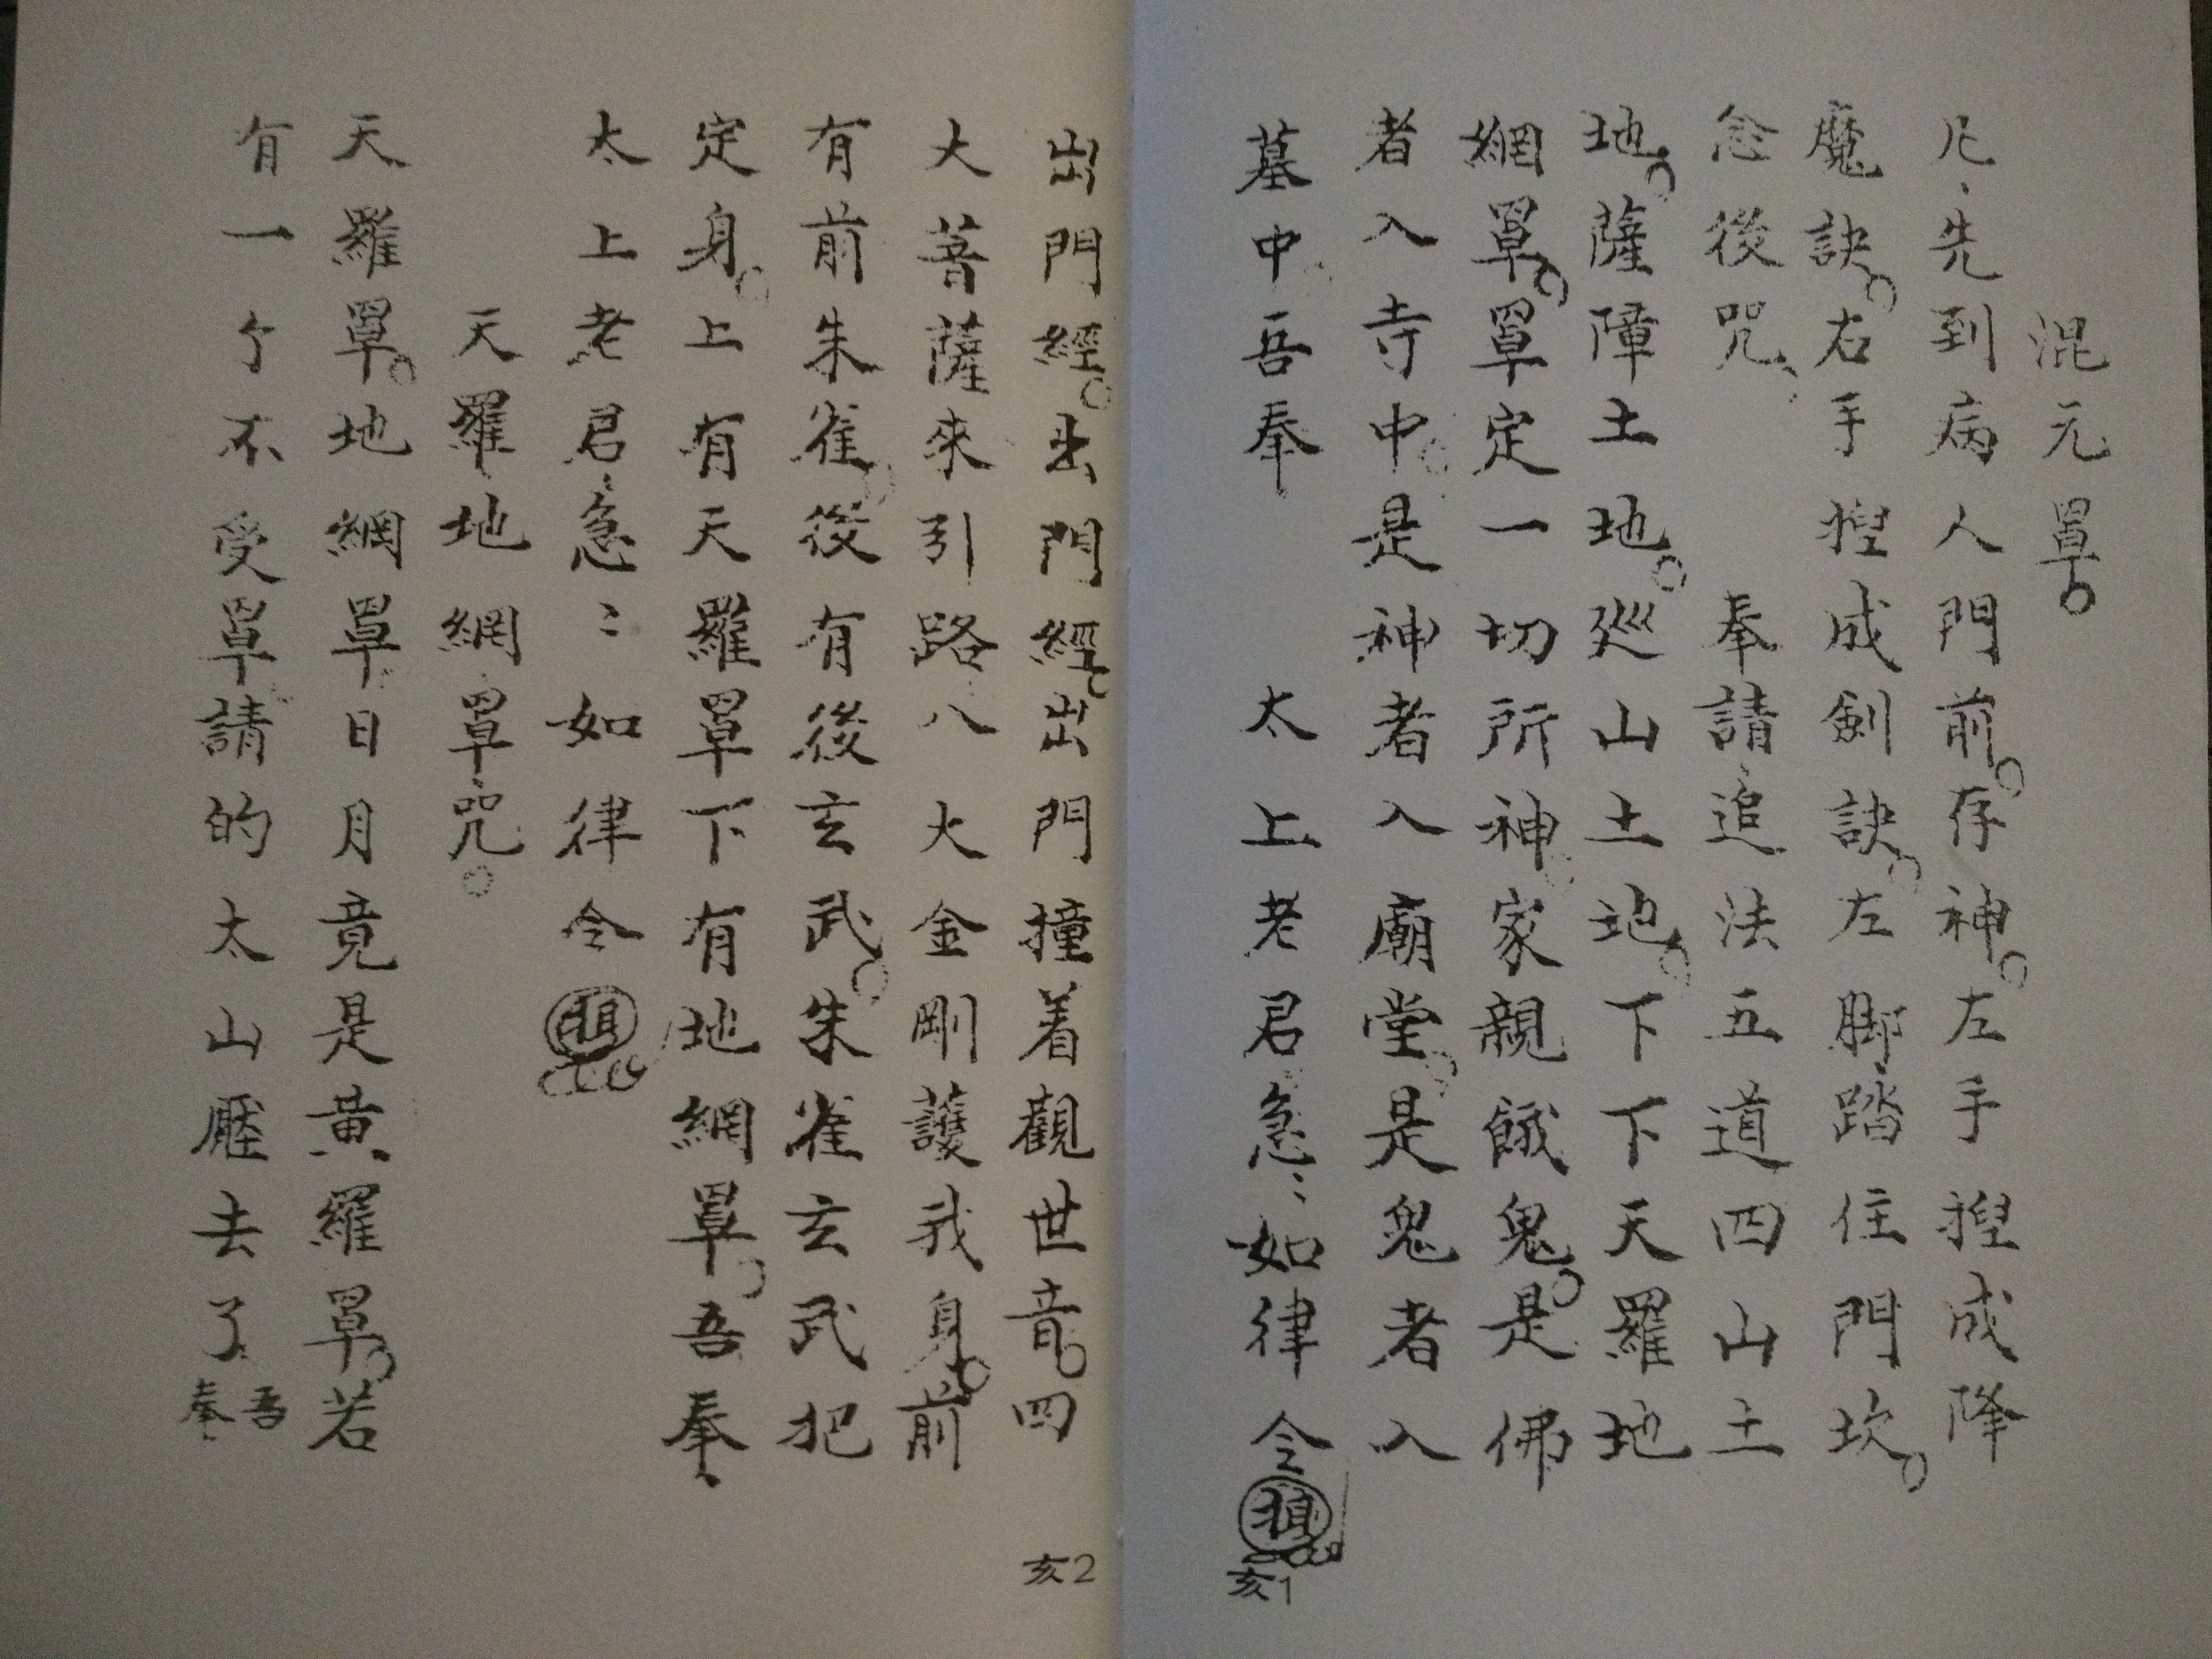 混元罩。
凡、先到病人門前。存神。左手揑成降
魔訣。右手揑成劍訣。左脚踏住門坎。
念後咒、奉請追法五道四山土
地。薩障土地。巡山土地。下下天羅地
網罩。罩定一切所神。家親餓鬼。是佛
者入寺中。是神者入廟堂。是鬼者入
墓中吾奉 太上老君急〻如律令
亥1
出門經。出門經。出門撞着觀世音。四
大菩薩來引路八大金剛護我身。前
有前朱雀。後有後玄武。朱雀玄武把
定身。上有天羅罩下有地網罩。吾奉
太上老君急〻如律令
天羅地網罩咒。
天羅罩。地網罩日月竟是黃羅罩。若
有一个不受罩請的太山壓去了吾奉
亥2